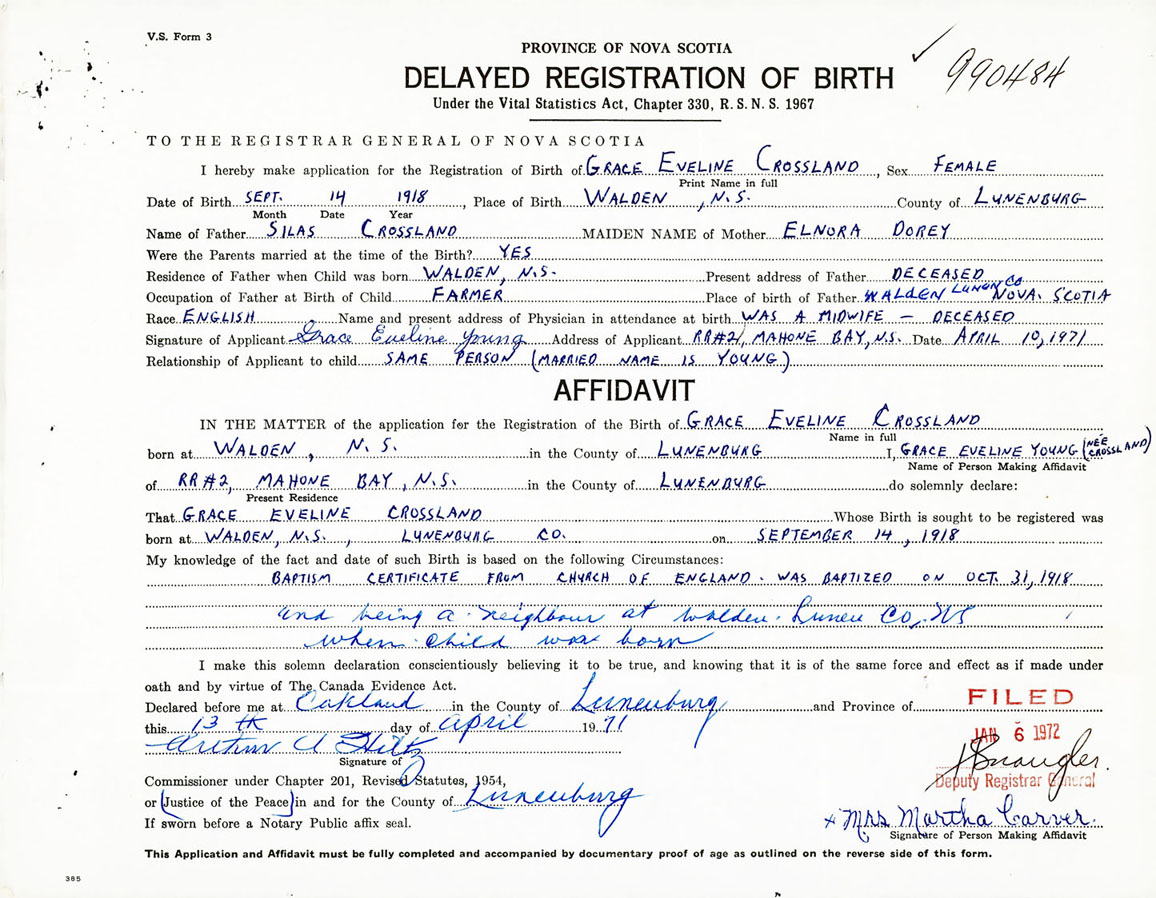 V.S. Form 3
PROVINCE OF NOVA SCOTIA
990484
DELAYED REGISTRATION OF BIRTH
Under the Vital Statistics Act, Chapter 330, R. S. N. S. 1967
TO THE REGISTRAR GENERAL OF NOVA SCOTIA
I hereby make application for the Registration of Birth of GRACE EVELINE CROSSLAND, Sex FEMALE
Print Name in full
Date of Birth SEPT. 14 1918, Place of Birth WALDEN, N.S. County of LUNENBURG
Month Date Year
Name of Father SILAS CROSSLAND MAIDEN NAME of Mother ELNORA DOREY
Were the Parents married at the time of the Birth? YES
Residence of Father when Child was born WALDEN, N.S. Present address of Father DECEASED
Occupation of Father at Birth of Child FARMER Place of birth of Father WALDEN LUNEN CO NOVA SCOTIA
Race ENGLISH Name and present address of Physician in attendance at birth WAS A MIDWIFE - DECEASED
Signature of Applicant Grace Eveline Young Address of Applicant RR#2, MAHONE BAY, N.S. Date APRIL 10, 1971
Relationship of Applicant to child SAME PERSON (MARRIED NAME IS YOUNG)
AFFIDAVIT
IN THE MATTER of the application for the Registration of the Birth of GRACE EVELINE CROSSLAND
Name in full
born at WALDEN, N.S. in the County of LUNENBURG I, GRACE EVELINE YOUNG (NÉE CROSSLAND)
Name of Person Making Affidavit
of RR#2, MAHONE BAY, N.S. in the County of LUNENBURG do solemnly declare:
Present Residence
That GRACE EVELINE CROSSLAND Whose Birth is sought to be registered was
born at WALDEN, N.S., LUNENBURG CO. on SEPTEMBER 14, 1918
My knowledge of the fact and date of such Birth is based on the following Circumstances:
BAPTISM CERTIFICATE FROM CHURCH OF ENGLAND. WAS BAPTIZED ON OCT. 31, 1918
and being a neighbour at Walden Lunen Co, NS
when child was born
I make this solemn declaration conscientiously believing it to be true, and knowing that it is of the same force and effect as if made under
oath and by virtue of The Canada Evidence Act.
Declared before me at Oakland in the County of Lunenburg and Province of
FILED
this 13th day of April 1971
JAN 6 1972
Arthur A Hiltz
Signature of
Deputy Registrar General
Commissioner under Chapter 201, Revised Statutes, 1954,
or (Justice of the Peace) in and for the County of Lunenburg
x Mrs Martha Carver
If sworn before a Notary Public affix seal.
Signature of Person Making Affidavit
This Application and Affidavit must be fully completed and accompanied by documentary proof of age as outlined on the reverse side of this form.
385